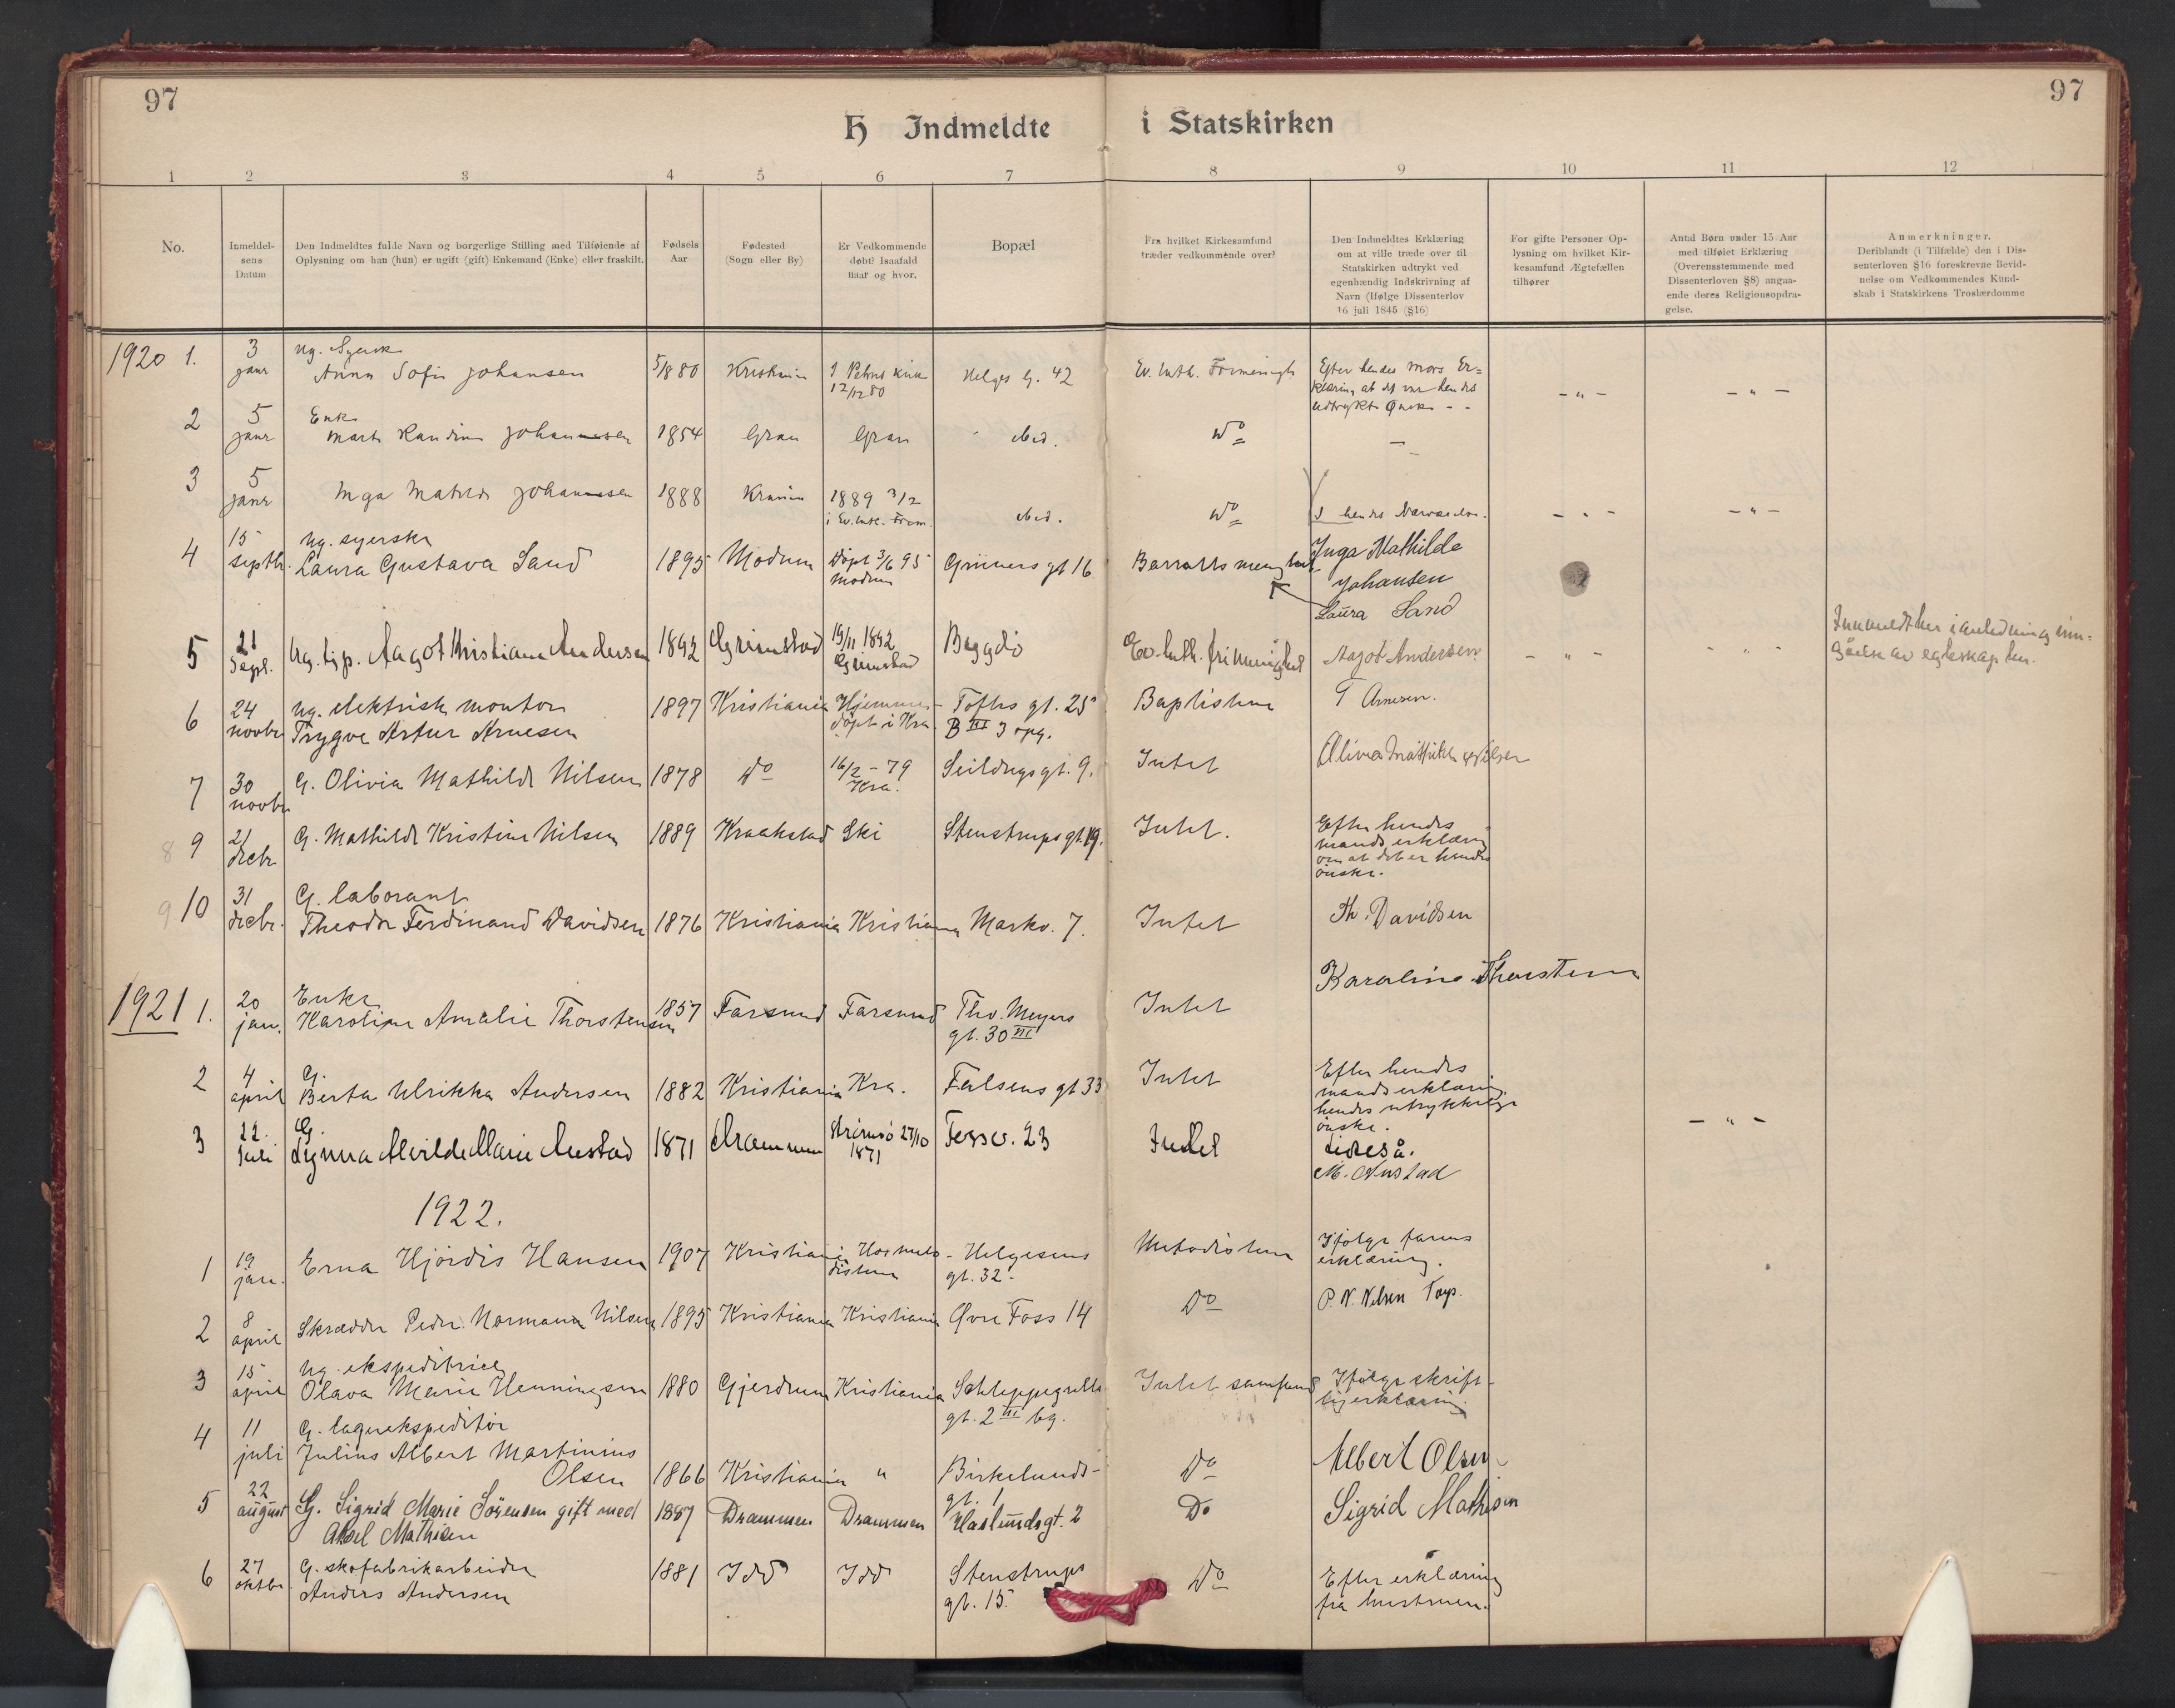 97
97
H Indmeldte i Statskirken
1 2 3 4 5 6 7 8 9 10 11 12
No.
Inmeldel-
sens
Datum
Den Indmeldtes fulde Navn og borgerlige Stilling med Tilføiende af
Oplysning om han (hun) er ugift (gift) Enkemand (Enke) eller fraskilt.
Fødsels
Aar
Fødested
(Sogn eller By)
Er Vedkommende
døbt? Isaafald
naar og hvor.
Bopæl
Fra hvilket Kirkesamfund
træder vedkommende over?
Den Indmeldtes Erklæring
om at ville træde over til
Statskirken udtrykt ved
egenhændig Indskrivning af
Navn (Ifølge Dissenterlov
16 juli 1845 (§16)
For gifte Personer Op-
lysning om hvilket Kir-
kesamfund Ægtefællen
tilhører
Antal Børn under 15 Aar
med tilføiet Erklæring
(Overensstemmende med
Dissenterloven §8) angaa-
ende deres Religionsopdra-
gelse.
Anmerkninger.
Deriblandt (i Tilfælde) den i Dis-
senterloven §16 foreskrevne Bevid-
nelse om Vedkommendes Kund-
skab i Statskirkens Troslærdomme
1920 1. 3 janr Ug. Syersk
Anna Sofie Johansen 5/8 80 Kristiania I Petrus kirk 12/12 80 Helges G. 42 Ev. luth. Frimenigh. Efter hendes mors Er=
klæring at det var hendes
udtrykte Ønske - -
- " - - " -
2 5 janr Enke
Marte Randine Johannesen 1854 Gran Gran ibid. Do -
3 5 janr Inga Matilde Johannesen 1888 Krania 1889 3/2
i Ev. luth. Frim. ibid. Do I hendes Nærværelse. - " - - " -
Inga Mathilde
Johansen
4 15 septbr. Ug. syerske
Laura Gustava Sand 1895 Modum Døpt 3/6 95
Modum Grüners gt 16 Barratts menighet
Laura Sand
5 21 Sept. Ug. tjp. Aagot Kristiane Andersen 1892 Grimstad 19/11 1892
Grimstad Bygdø Ev. luth. frimenighet Aagot Andersen - " - - " - Innmeldt her i anledning inn-
gåelse av egteskap her.
6 24 novbr Ug. elektrisk montør
Trygve Artur Arnesen 1897 Kristiania Hjemme-
døpt i Kra. Toftes gt. 25
B III 3 opg. Baptisten T Arnesen.
7 30 novbr G. Olivia Mathilde Nilsen 1878 Do 16/2 - 79
Kra. Seildugsgt. 9. Intet Olivia Mathilde Nilsen
8 9 21 decbr G. Mathilde Kristine Nilsen 1889 Kraakstad Ski Stenstrupsgt. 19. Intet. Efter hendes
mands erklæring
om at det er hendes
ønske.
9 10 31 decbr. G. laborant
Theodor Ferdinand Davidsen 1876 Kristiania Kristiania Markv. 7. Intet Th. Davidsen
1921 1. 20 jan. Enke
Karoline Amalie Thorstensen 1857 Farsund Farsund Thv. Meyers
gt. 30 III Intet Karoline Thorstensen
2 4 april G.
Berta Ulrikka Andersen 1882 Kristiania Kra. Falsens gt 33 Intet Efter hendes
mands erklæring
hendes utrykkelige
ønske.
3 22. Juli G.
Lynna Alvilde Marie Austad 1871 Drammen Strømsø 27/10
1871 Fossv. 23 Intet Likeså.
M. Austad - " -
1922.
1 19 jan. Erna Hjørdis Hansen 1907 Kristiania Hos meto-
disterne Helgesens
gt. 32 Metodisterne Ifølge farens
erklæring.
2 8 april Skrædder Peder Normann Nilsen 1895 Kristiania Kristiania Øvre Foss 14 Do P. N. Nilsen
3 15 april Ug. ekspeditrice
Olava Marie Henningsen 1880 Gjerdrum Kristiania Schleppegrells
gt. 2 III bg. Intet samfund Ifølge skrift-
lig erklæring
4 11 juli G. lagerekspeditør
Julius Albert Martinius
Olsen 1866 Kristiania " Birkelunds-
gt. 1 Do Albert Olsen
5 22 august G. Sigrid Marie Sørensen gift med
Aksel Mathisen 1887 Drammen Drammen Haslundsgt. 2 Do Sigrid Mathisen
6 27 oktbr. G. skofabrikarbeider
Anders Andersen 1881 Idd Idd Stenstrups
gt. 15 Do Efter erklæring
fra hustruen.